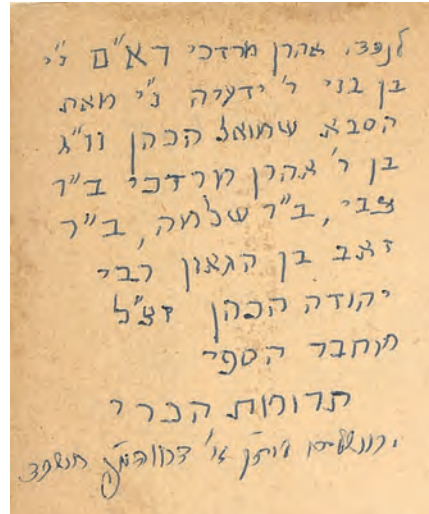 לנכד׳ אהרן מרדכי רא״ם נ״י
בן בני ר׳ ידעיה נ״י מאת
הסבא שמואל הכהן
בן ר׳ אהרן מרדכי ב״ר
צבי, ב״ר שלמה, ב״ר
זאב בן הגאון רבי
יהודה הכהן זצ״ל
מחבר הספר
תרומת הכרי